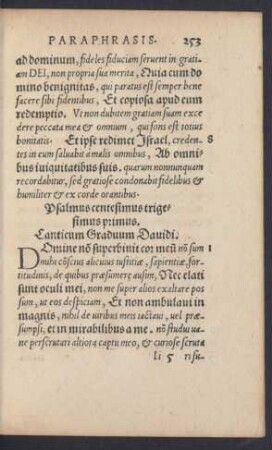 PARAPHRASIS. 253
ad dominum, fideles fiduciam seruent in grati-
am DEI, non propria sua merita, Quia cum do
mino benignitas, qui paratus est semper bene
facere sibi fidentibus, Et copiosa apud eum
redemptio. Vt non dubitem gratiam suam exce
dere peccata mea & omnium, qui fons est totius
bonitatis. Et ipse redimet Israel, creden- 8
tes in eum saluabit a malis omnibus, Ab omni
bus iniquitatibus suis. quarum nonnunquam
recordabitur, sed gratiose condonabit fidelibus &
humiliter & ex corde orantibus.
Psalmus centesimus triges
simus primus.
Canticum Graduum Dauidi.
DOmine nō superbiuit cor meū nō sum 1
mihi cōscius alicuius iustitiæ, sapientiæ, for-
titudinis, de quibus præsumere ausim, Nec elati
sunt oculi mei, non me super alios exaltare pos
sum, ut eos despiciam, Et non ambulaui in
magnis, nihil de uiribus meis iactaui, uel præ-
sumpsi, et in mirabilibus a me. nō studui ua
ne perscrutari altiora captu meo, & curiose scruta
li 5 ri su-